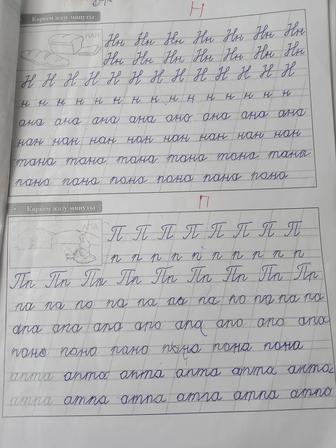 Н
Көркем жазу минуты
НАН
Нн Нн Нн Нн Нн Нн Нн
Нн Нн Нн Нн Нн Нн Нн
Н Н Н Н Н Н Н Н Н Н Н Н Н
н н н н н н н н н н н н н
ана ана ана ана ана ана ана ана
нан нан нан нан нан нан нан нан
тана тана тана тана тана тана
пана пана пана пана пана пана
П
Көркем жазу минуты
АПА
П П П П П П П П
п п п п п п п п п
Пп Пп Пп Пп Пп Пп Пп Пп
па па па па па па па па па па
апа апа апа апа апа апа апа апа
пана пана пана пана пана пана
апта апта апта апта апта апта
атпа атпа атпа атпа атпа атпа